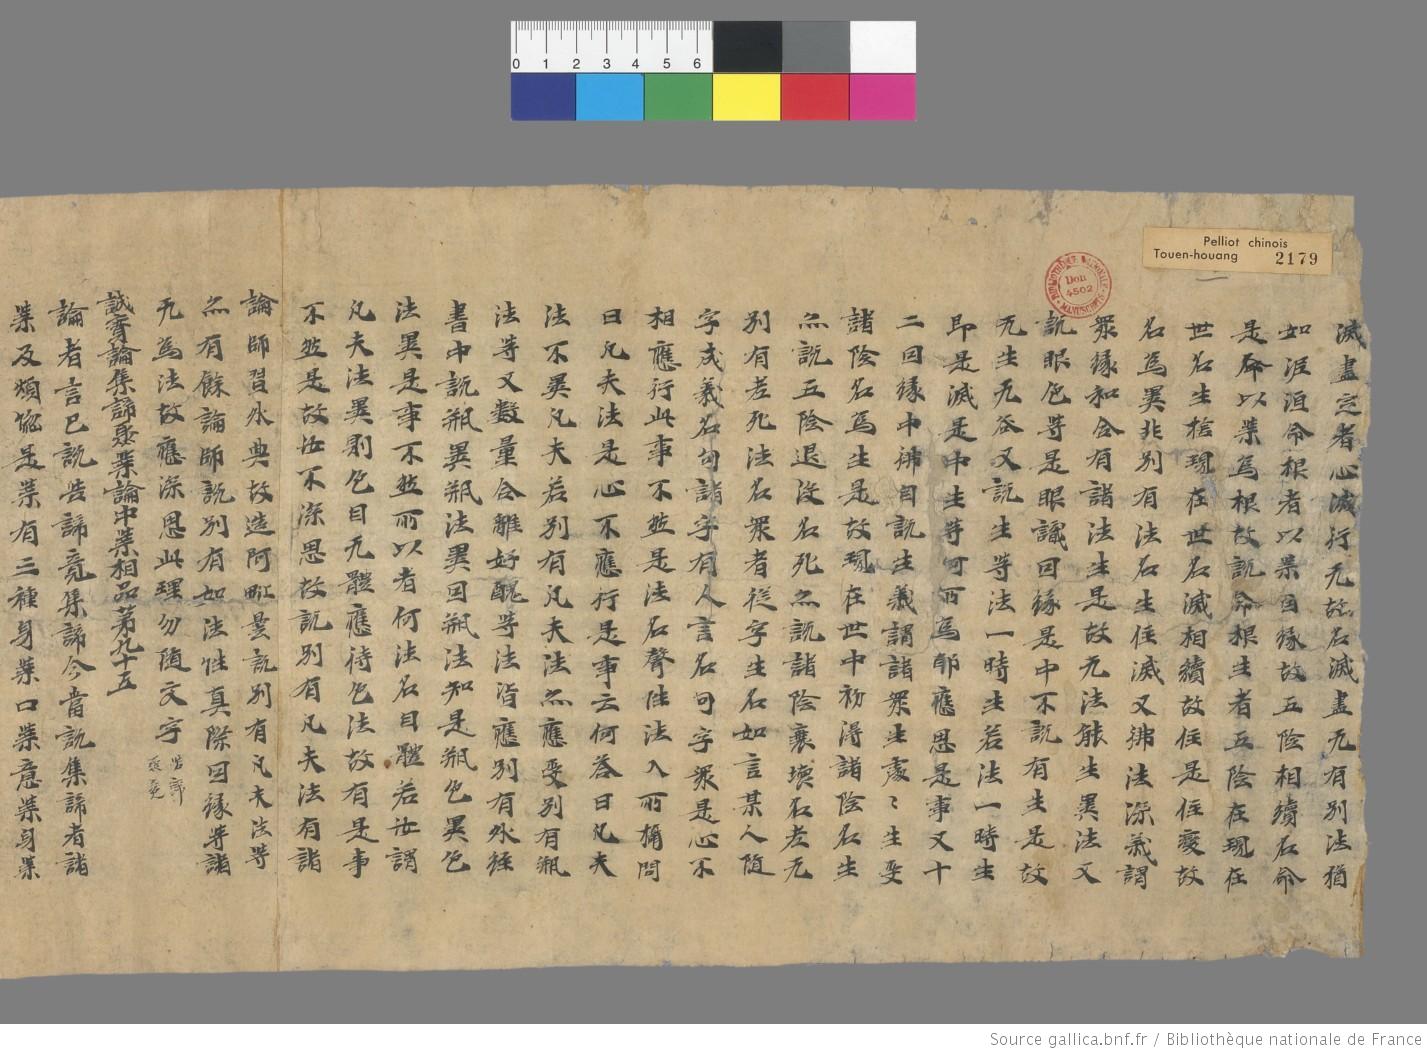 0 1 2 3 4 5 6
Pelliot chinois
Touen-houang 2179
BIBLIOTHÈQUE NATIONALE
Don
4502
MANUSCRITS
滅盡定者心滅行无故名滅盡无有別法猶
如泥洹命根者以業因緣故五陰相續名命
是命以業為根故說命根生者五陰在現在
世名生捨現在世名滅相續故住是住變故
名為異非別有法名生住滅又佛法深義謂
眾緣和合有諸法生是故无法能生異法又
說眼色等是眼識因緣是中不說有生是故
无生无咎又說生等法一時生若法一時生
即是滅是中生等何所為耶應思是事又十
二因緣中佛自說生義謂諸眾生處〻生受
諸陰名為生是故現在世中初得諸陰名生
亦說五陰退沒名死亦說諸陰衰壞名老无
別有老死法名眾者從字生名如言某人隨
字成義名句諸字有人言名句字眾是心不
相應行此事不然是法名聲性法入所攝問
曰凡夫法是心不應行是事云何答曰凡夫
法不異凡夫若別有凡夫法亦應受別有瓶
法等又數量合離好醜等法皆應別有外經
書中說瓶異瓶法異因瓶法知是瓶色異色
法異是事不然所以者何法名自體若汝謂
凡夫法異則色自无體應待色法故有是事
不然是故汝不深思故說別有凡夫法有諸
論師習外典故造阿毗曇說別有凡夫法等
亦有餘論師說別有如法性真際因緣等諸
无為法故應深思此理勿隨文字
誠實論集諦聚業論中業相品第九十五
論者言已說苦諦竟集諦今當說集諦者諸
業及煩惱是業有三種身業口業意業身業
Source gallica.bnf.fr / Bibliothèque nationale de France